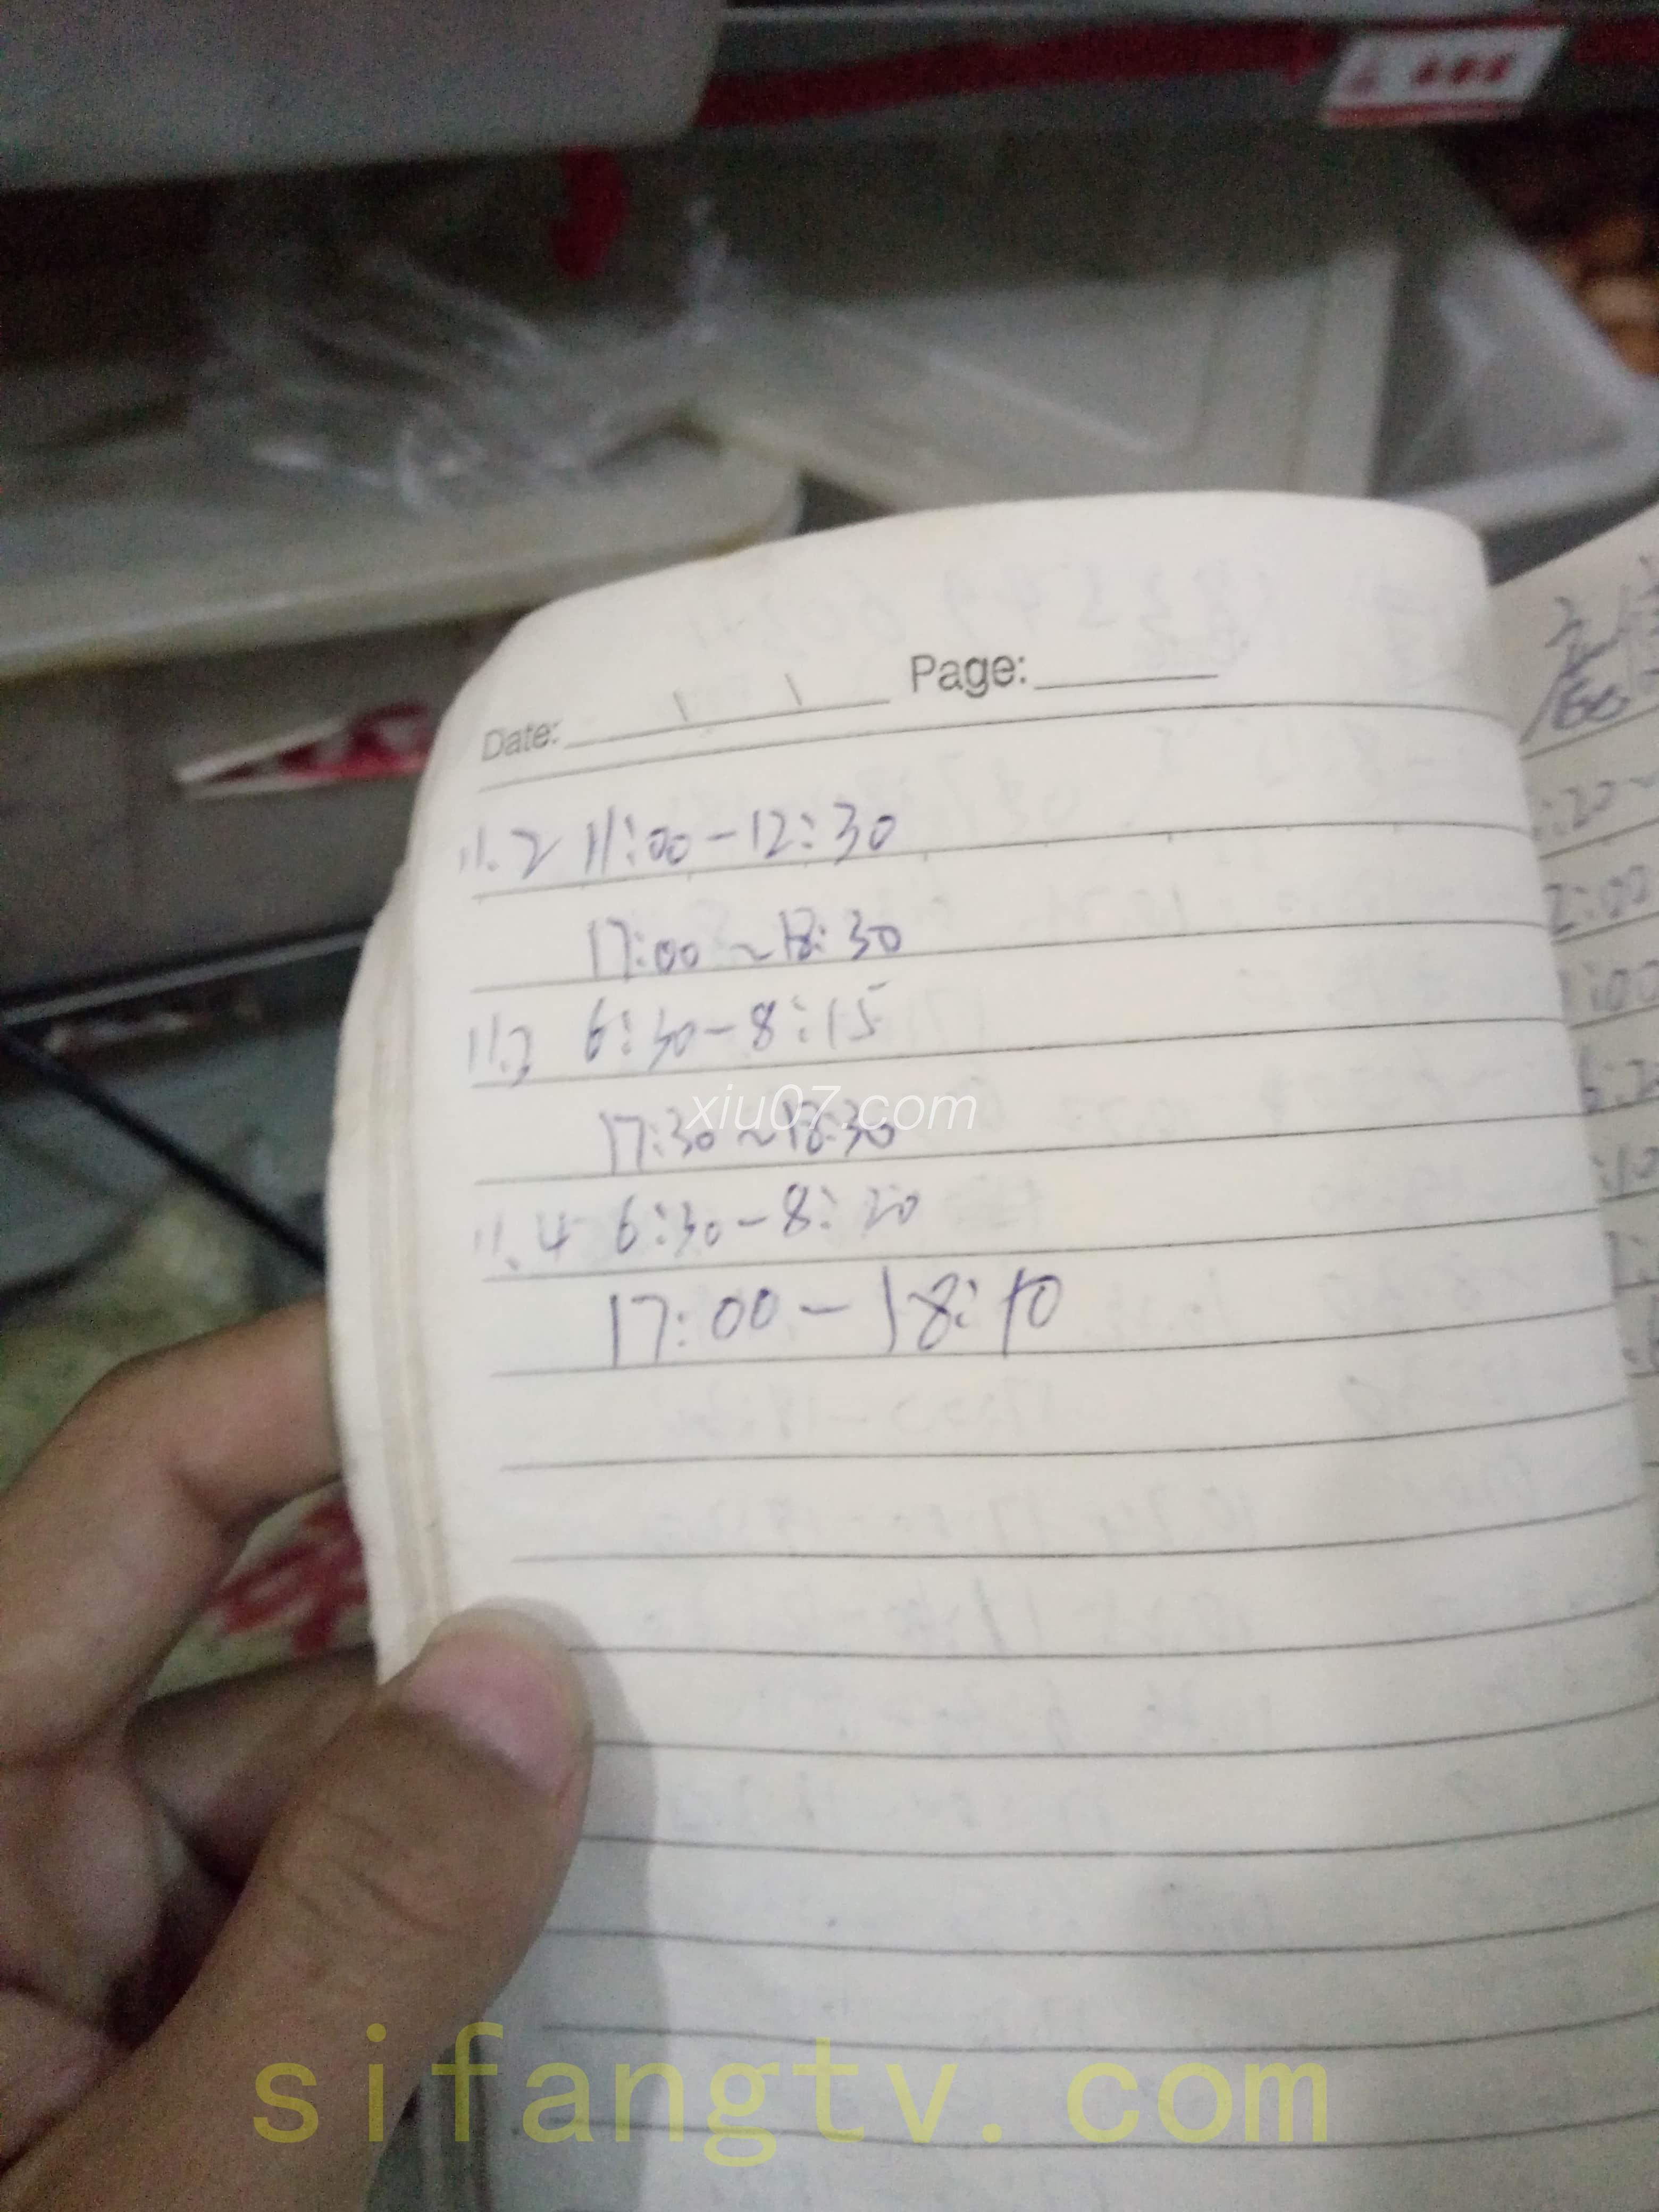 Date: Page:
11.2 11:00-12:30
17:00~18:30
11.3 6:30-8:15
xiu07.com
17:30~18:30
11.4 6:30-8:20
17:00-18:10
:20-
2:00
:00
:10
sifangtv.com